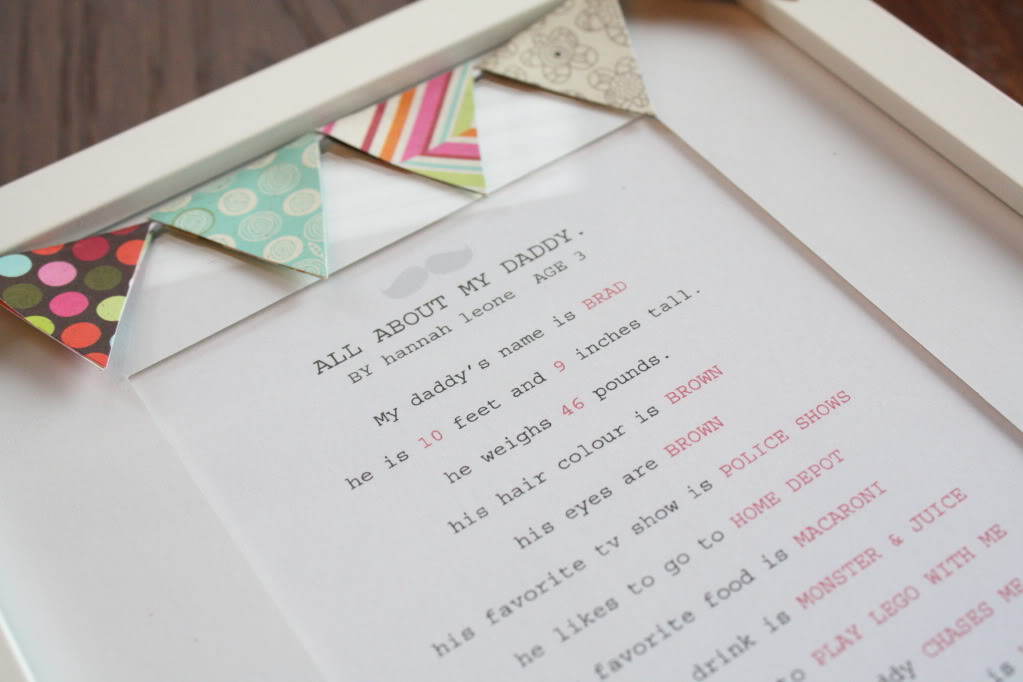 ALL ABOUT MY DADDY.
BY hannah leone AGE 3
My daddy's name is BRAD
he is 10 feet and 9 inches tall.
he weighs 46 pounds.
his hair colour is BROWN
his eyes are BROWN
his favorite tv show is POLICE SHOWS
he likes to go to HOME DEPOT
favorite food is MACARONI
drink is MONSTER & JUICE
to PLAY LEGO WITH ME
CHASES ME
is